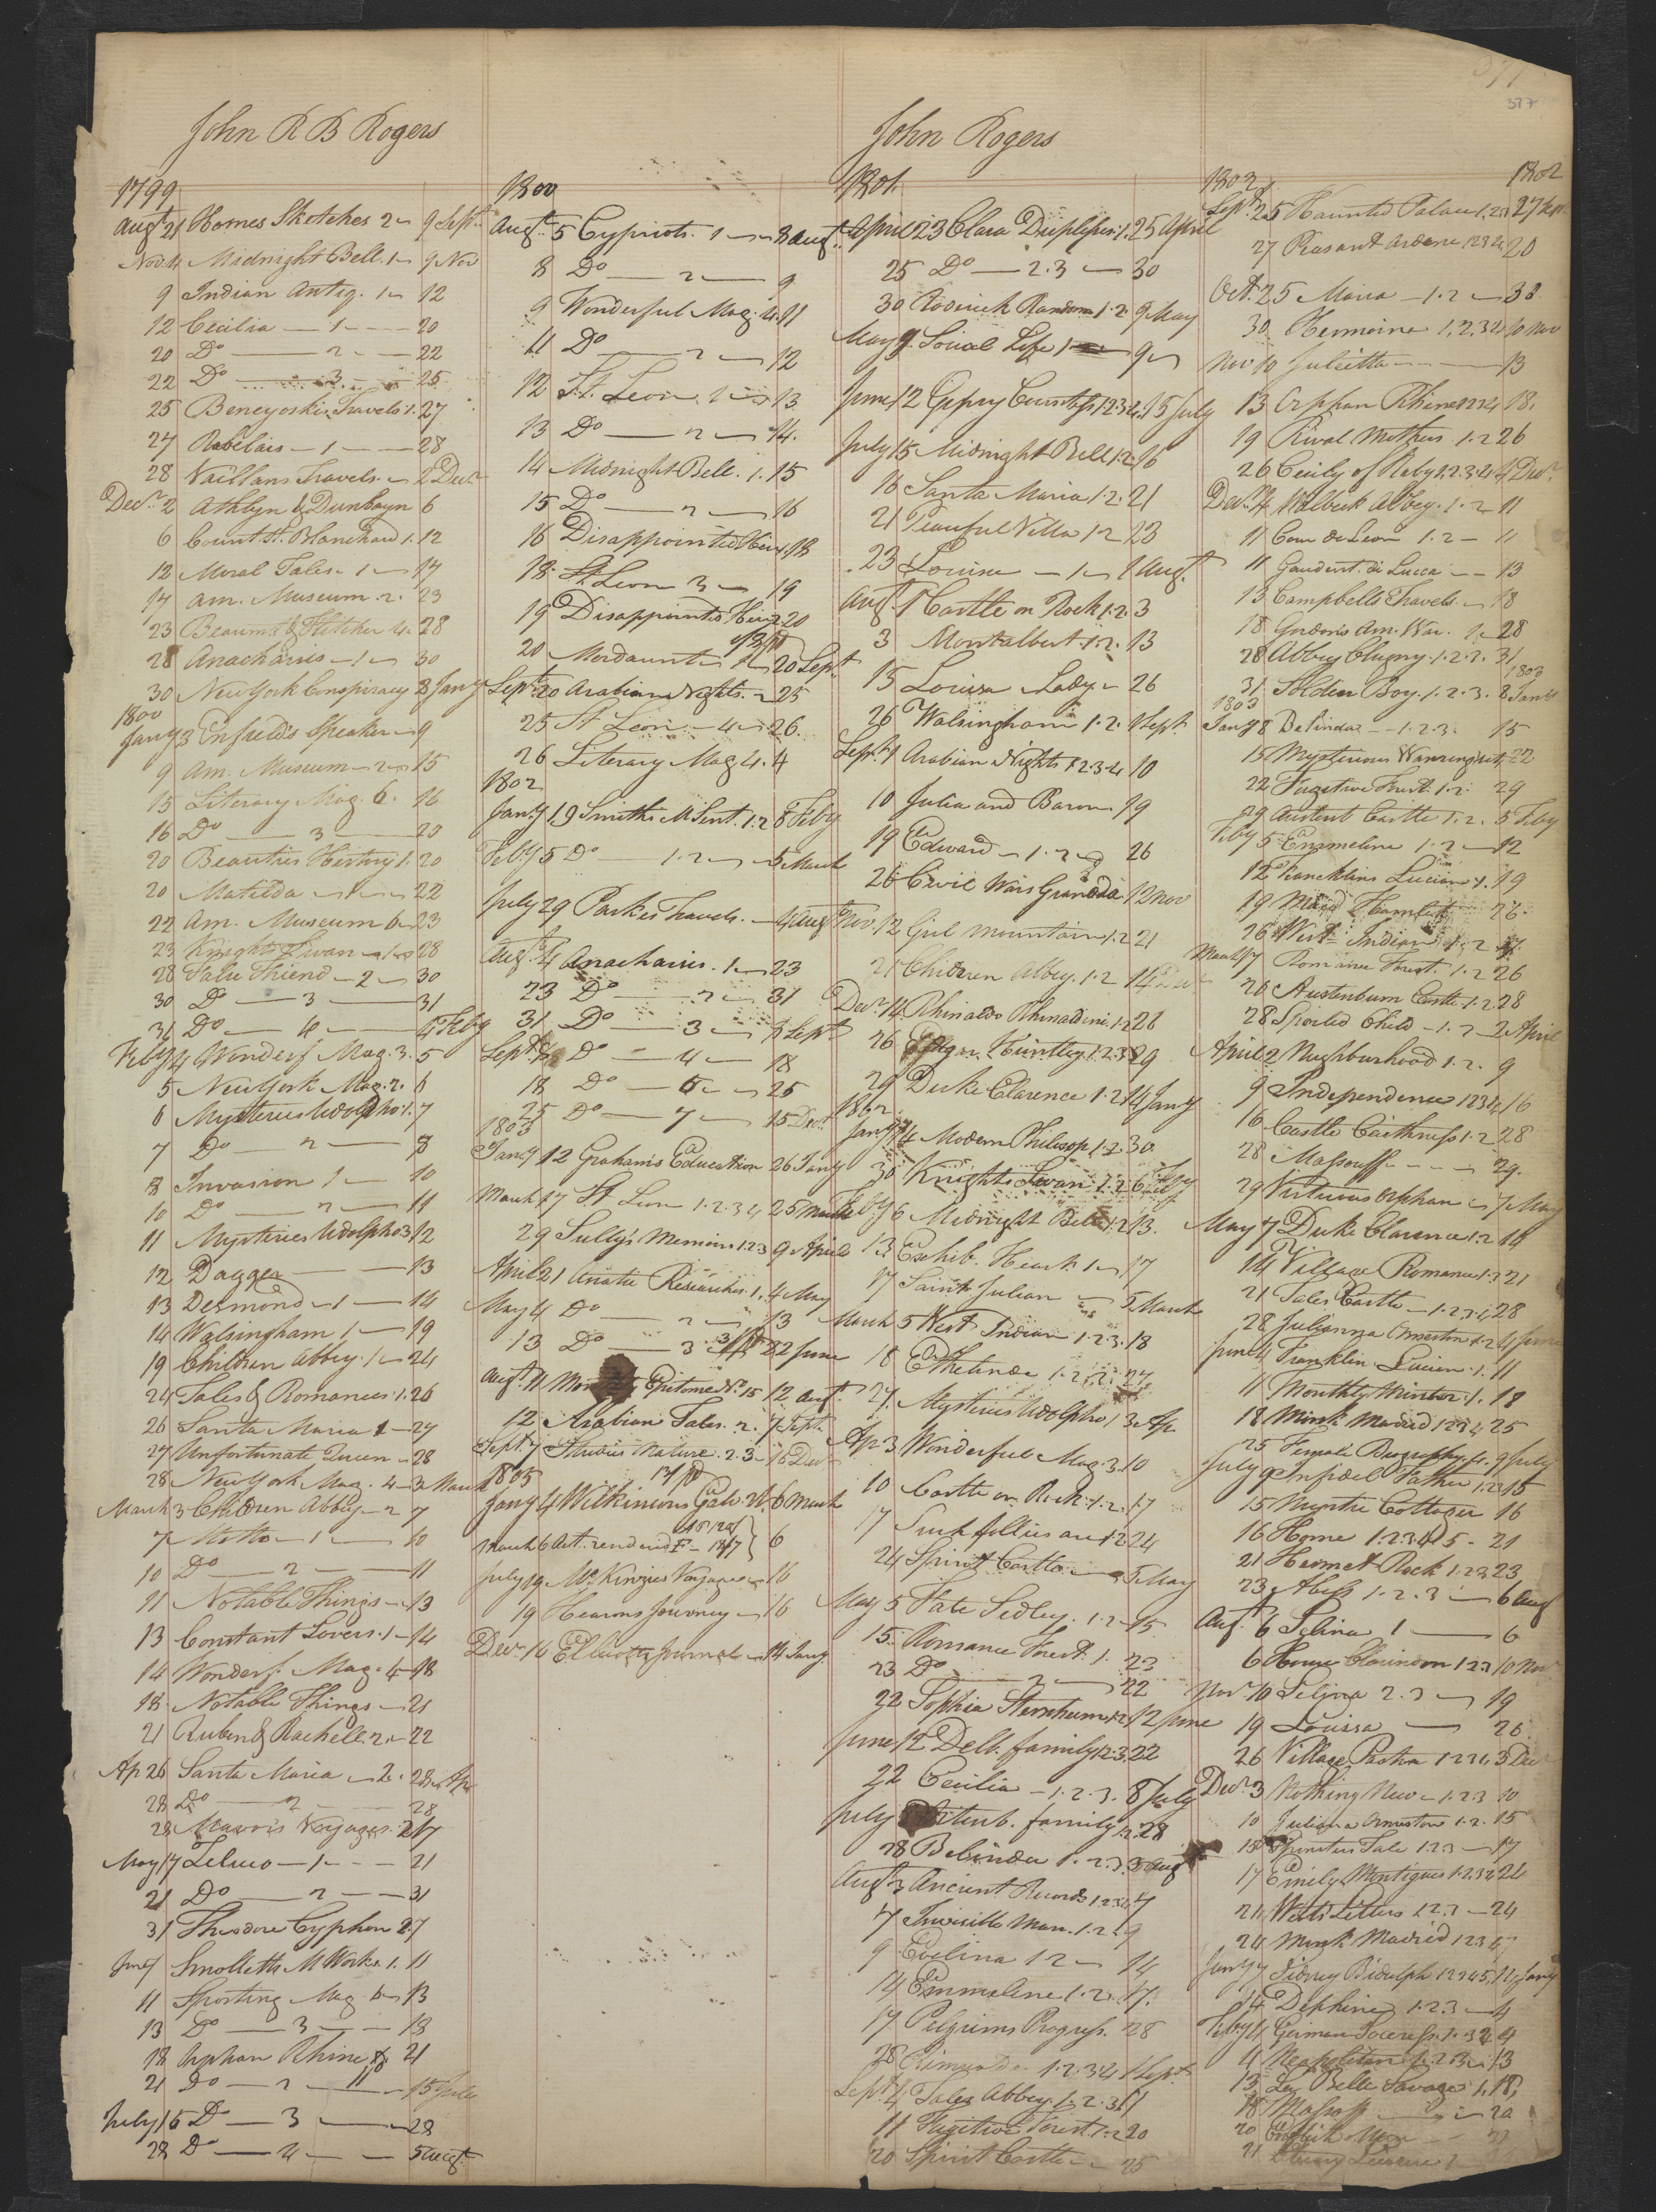 377
John R B Rogers
1799
Augt 21 Homes Sketches 2 9 Sept.
Nov. 4 Midnight Bell. 1 9 Nov
9 Indian Antiq. 1 12
12 Cecilia — 1 — 20
20 Do — 2 — 22
22 Do — 3 — 25
25 Beneyoskis Travels 1. 27
27 Rabelais — 1 — 28
28 Vaillans Travels. 2 Decr
Decr. 2 Athlyn & Dunbayn 6
6 Count St. Blanchard 1. 12
12 Moral Tales 1 17
17 Am. Museum. 2. 23
23 Beaumt. & Fletcher 4. 28
28 Anacharsis — 1 — 30
30 New York Conspiracy 3 Jany
1800
Jany 3 Enfield's Speaker — 9
9 Am. Museum — 2 — 15
15 Literary Mag. 6. 16
16 Do — 3 — 20
20 Beauties History 1. 20
20 Matilda — 1 — 22
22 Am. Museum 6 — 23
23 Knights Swan — 1 — 28
28 False Friend — 2 — 30
30 Do — 3 — 31
31 Do — 4 — 4 Feby
Feby 4 Wonderf. Mag. 3. 5
5 New York Mag. 2. 6
6 Mysteries Udolpho 1. 7
7 Do — 2 — 8
8 Invasion 1 — 10
10 Do — 2 — 11
11 Mysteries Udolpho 3 12
12 Dagger — 13
13 Desmond — 1 — 14
14 Walsingham 1 — 19
19 Children Abbey. 1 — 24
24 Tales & Romances 1. 26
26 Santa Maria 1 — 27
27 Unfortunate Queen — 28
28 New York Mag. 4 — 3 March
March 3 Children Abbey — 2 7
7 Motto — 1 — 10
10 Do — 2 — 11
11 Notable Things — 13
13 Constant Lovers. 1 — 14
14 Wonderf. Mag. 4 — 18
18 Notable Things — 21
21 Ruben & Rachell. 2 — 22
Ap 26 Santa Maria — 2. 28 Ap
28 Do — 2 — 28
28 Mavors Voyages. 2 17
May 17 Zeluco — 1 — 21
21 Do — 2 — 31
31 Theodore Cyphon 2. 7
June 7 Smolletts M Works. 1. 11
11 Sporting Mag 6 — 13
13 Do — 3 — 18
18 Orphan Rhine 21
21 Do — 2 — 15 July
July 15 Do — 3 — 28
28 Do — 4 — 5 Augt.
1800
Augt. 5 Cypriots. 1 — 8 Augt.
8 Do — 2 — 9
9 Wonderful Mag. 4. 11
11 Do — 2 — 12
12 St. Leon. 1 — 13
13 Do — 2 — 14.
14 Midnight Bell. 1. 15
15 Do — 2 — 16
16 Disappointed Heir 1. 18
18 St. Leon 3 — 19
19 Disappointed Heir 2 20
20 Mordaunt 20 Sept.
Sept. 20 Arabian Nights. 25
25 St Leon — 4 — 26.
26 Literary Mag. 4. 4
1802
Jany 19 Smiths M Sent. 1.2 5 Feby
Feby 5 Do — 1.2 — 5 March
July 29 Parkes Travels. — 4 Augt
Augt. 4 Anacharsis. 1 — 23
23 Do — 2 — 31
31 Do — 3 — 8 Sept
Sept. 8 Do — 4 — 18
18 Do — 6 — 25
25 Do — 7 — 15 Decr.
1803
Jany 12 Grahams Education 26 Jany
March 17 St. Leon 1.2.3 4 25 March
29 Sully's Memoirs 1.2.3 9 April
April 21 Asiatic Researches. 1. 4 May
May 4 Do — 2 — 13
13 Do — 3 22 June
Augt. 11 Epitome No. 15 12 Augt.
12 Arabian Tales. 2. 7 Sept.
Sept 7 Studies Nature. 2.3 — 16 Decr
1805
Jany 4 Wilkinsons 6 March
March 6 Act. rendered 6
July 19 McKinzies Voyage 16
19 Hearns Journey — 16
Decr 16 Ellicotts Journal — 14 Jany.
John Rogers
1801
April 23 Clara Duplessis 1. 25 April
25 Do — 2.3 — 30
30 Roderick Random 1.2. 9 May
May 9 Social Life 1 — 9
June 12 Gipsy Countess 1.2.3.4. 15 July
July 15 Midnight Bell 1.2 16
16 Santa Maria 1.2. 21
21 Peaceful Villa 1.2 23
23 Louisa — 1 — 1 Augt.
Augt. 1 Castle on Rock 1.2. 3
3 Montalbert 1.2. 13
15 Louisa Lady — 26
26 Walsingham 1.2. 1 Sept.
Sept. 1 Arabian Nights 1 2 3 4 10
10 Julia and Baron. 19
19 Edward — 1.2 — 26
26 Civil Wars Granada 12 Nov
Nov. 12 Girl Mountain 1.2 21
21 Children Abbey. 1.2 14 Decr
Decr. 14 Rhinaldo Rhinaldini 1.2 26
26 Edgar Huntley 1.2.3 29
29 Duke Clarence 1.2 14 Jany
1802
Jany 14 Modern Philosop. 1.2. 30
30 Knights Swan 1.2 6 Feby
Feby 6 Midnight Bell 1.2 13.
13 Exhib. Heart. 1 — 17
17 Saint Julian — 5 March
March 5 West Indian 1.2.3. 18
18 Ethelinde 1.2.3. 27.
27. Mysteries Udolpho 1 3 Ap
Ap 3 Wonderful Mag. 3. 10
10 Castle on Rock. 1.2. 17
17 Such follies are 1.2 24
24 Spirit Castle — 5 May
May 5 Fate Sedley. 1.2 — 15
15. Romance Forest 1. 23
23 Do — 2 — 22
22 Sophia Sternheim 1.2 12 June
June 12 Delb. family 1.2.3. 22
22 Cecilia — 1.2.3. 8 July
July family 1.2. 28
28 Belinda 1.2.3. 3 Augt
Augt. 3 Ancient Records 1 2 3 4. 7
7 Invisible Man. 1.2. 9
9 Evelina 1 2 — 14
14 Emmeline 1.2. 17.
17 Pelgrims Progress. 28
28 1.2.3.4 1 Sept
Sept. 4 Tales Abbey 1.2.3. 11
11 Fugitive Forest 1.2 20
20 Spirit Castle — 25
1802
1802
Sept. 25 Haunted Palace 1.2.3 27 Sept
27 Peasant Ardene 1 2 3 4 20
Oct. 25 Maria — 1.2 — 30.
30 Hermoine 1.2.3 4 10 Nov
Nov 10 Julietta — 13
13 Orphan Rhine 1 2 3 4 18.
19 Rival Mothers 1.2 26
26 Cecily of Raby 1.2.3.4 4 Decr.
Decr. 4 Walbeck Abbey. 1.2 11
11 Cour de Leon 1.2 — 11
11 Gaudent. di Lucca — 13
13 Campbells Travels. — 18
18 Gordons Am. War. 1. 28
28 Abbey Clugny. 1.2.3. 31
1803
31 Soldier Boy. 1.2.3. 8 Jany
1803
Jany 8 Belinda — 1.2.3. 15
15 Mysterious Warning 22
22 Fugitive Forest. 1.2. 29
29 Austenb Castle 1.2. 5 Feby
Feby 5 Emmeline 1.2 — 12
12 Francklins Lucian 1. 19
19 Maid Hamlet 26.
26 West Indian 1.2
March 7 Romance Forest. 1.2 26
20 Austenburn Castle 1.2. 28
28 Spoiled Child — 1.2 — 2 April
April 2 Neighbourhood 1.2. 9
9 Independence 1 2 3 4 16
16 Castle Caithness 1.2 28
28 Massouff — 29.
29 Virtuous Orphan — 7 May
May 7 Duke Clarence 1.2 14
14 Village Romance 1.2 21
21 Tales Castle — 1.2.3.4. 28
28 Julianna Ormeston 1.2 4 June
June 4 Franklin Lucian. 1. 11
11 Monthly Mirror. 1. 18
18 Monk Madrid 1 2 3 4 25
25 Female Biography. 1. 9 July
July 9 Infidel Father 1.2.3 15
15 Myrtle Cottager 16
16 Home 1.2.3.4.5 — 21
21 Hermet Rock 1.2.3 23
23 Abess 1.2.3 — 6 Aug
Augt. 6 Selina 1 — 6
6 Clarindon 1 2 3 10 Nov
Novr 10 Selina 2.3 — 19
19 Louisa — 26
26 Village Pastor 1 2 3 4 3 Decr
Decr. 3 Nothing New — 1.2.3 10
10 Juliana Ormeston 1.2. 15
15 Spinsters Tale 1.2.3 — 17
17 Emily Montigue 1.2.3.4 24
21 Letters 1.2.3 — 24
24 Monk Madrid 1 2 3 4
Jany 7 Sidney Bidulph 1 2 3 4 5. 14 Jany
14 Delphine 1.2.3 — 4
Feby 4 German Sorceress. 1. 3 4 4
4 Neapolitan 1.2.3. 13
13 La Belle Savage 1. 18
18 Massouff — 20
20
21